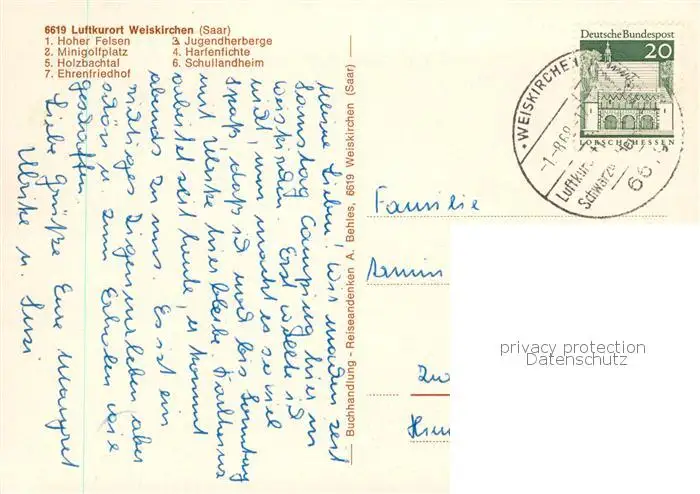 6619 Luftkurort Weiskirchen (Saar)
1. Hoher Felsen
2. Minigolfplatz
5. Holzbachtal
7. Ehrenfriedhof
3. Jugendherberge
4. Harfenfichte
6. Schullandheim
Meine Lieben! Wir machen seit
Samstag Camping hier in
Weiskirchen. Erst wollte ich
nicht, nun macht es so viel
Spaß, daß ich noch bis Sonntag
mit Ulrike hierbleibe. Karlheinz
arbeitet seit heute, er kommt
abends zu uns. Es ist ein
richtiges Zigeunerleben aber
schön u. zum Erholen wie
geschaffen.
Liebe Grüße Eure Margret
Ulrike u. Susi
Buchhandlung - Reiseandenken A. Behles, 6619 Weiskirchen (Saar)
Deutsche Bundespost
20
LORSCH/HESSEN
WEISKIRCHEN
-1.-8.68
Luftkur
Schwarzw
661
Familie
Armin
privacy protection
Datenschutz